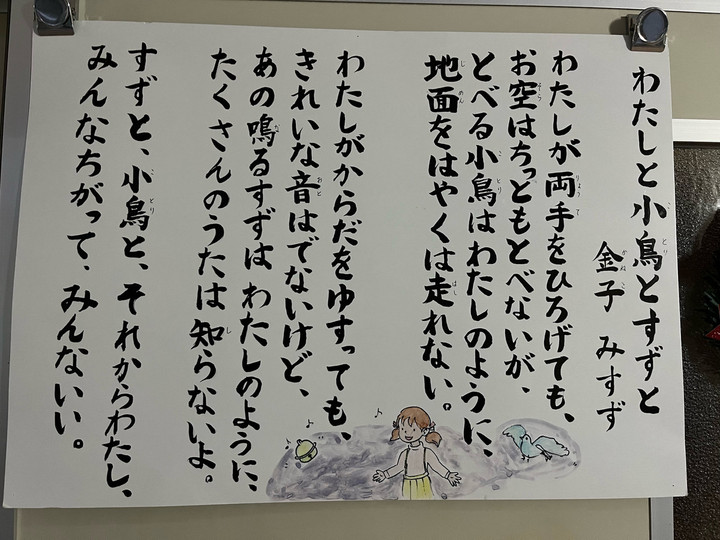 わたしと小鳥とすずと
金子 みすず
わたしが両手をひろげても、
お空はちっともとべないが、
とべる小鳥はわたしのように、
地面をはやくは走れない。
わたしがからだをゆすっても、
きれいな音はでないけど、
あの鳴るすずは わたしのように、
たくさんのうたは 知らないよ。
すずと、小鳥と、それからわたし、
みんなちがって、みんないい。